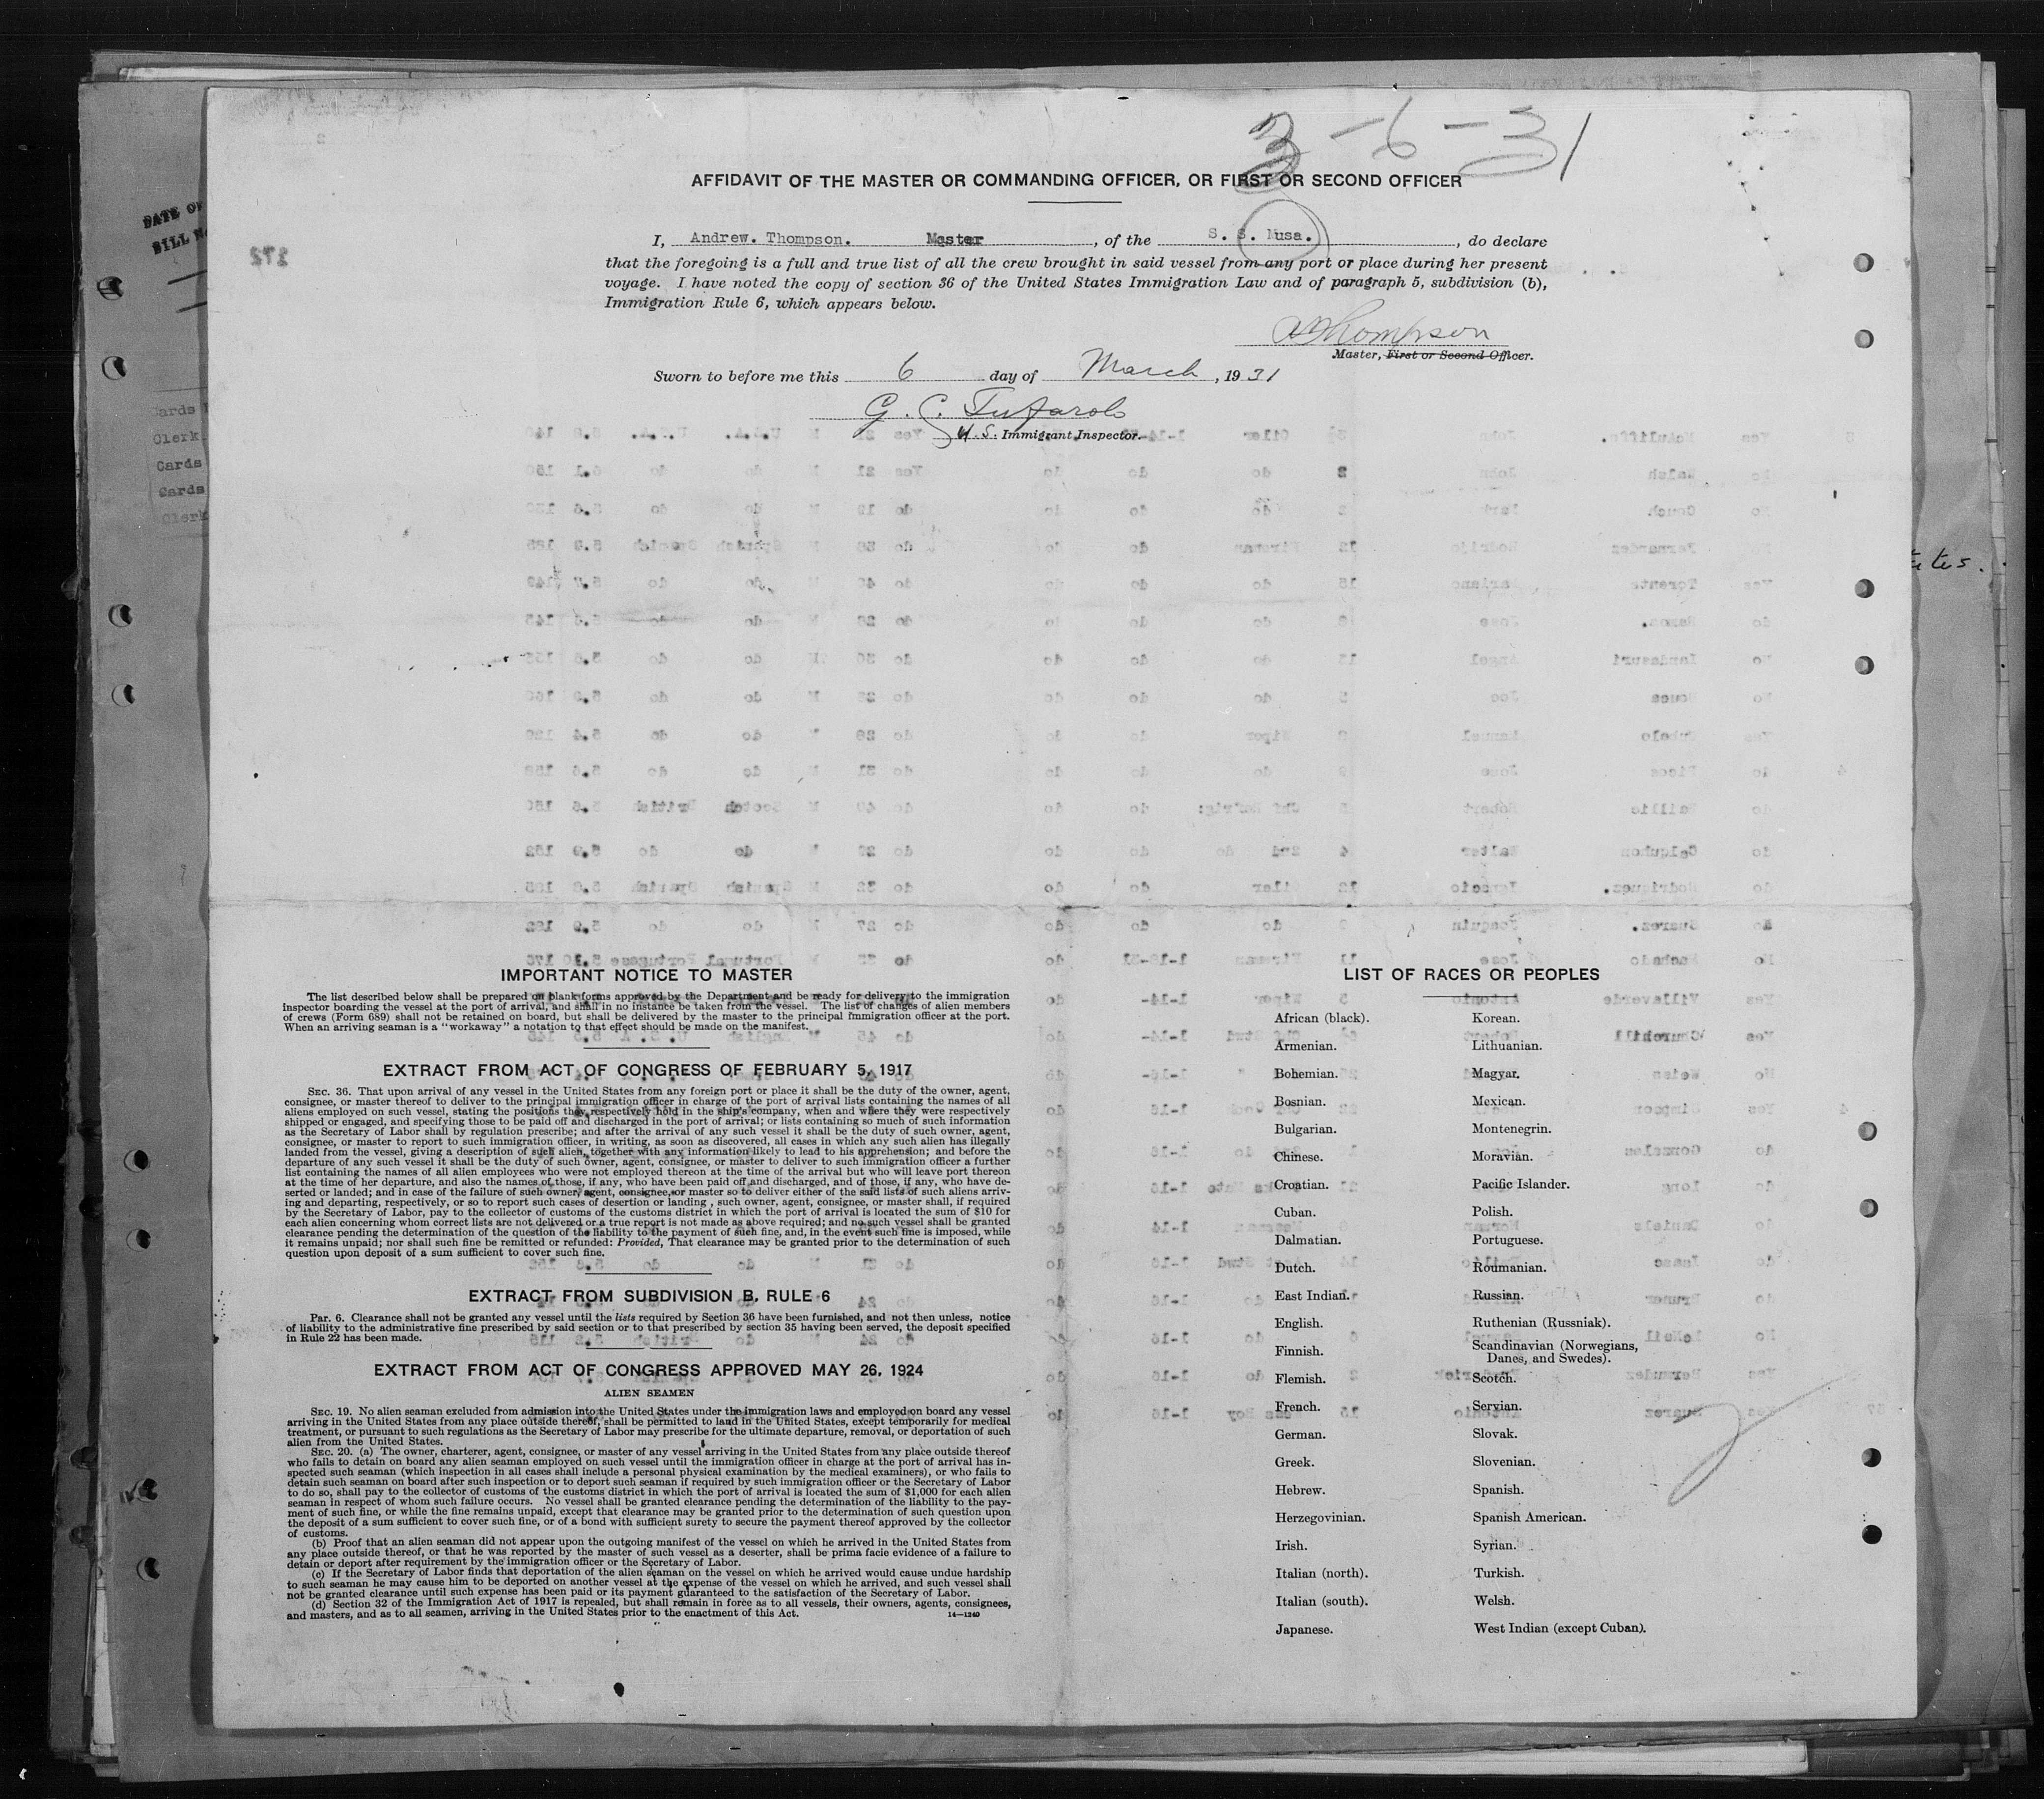 3-6-31
AFFIDAVIT OF THE MASTER OR COMMANDING OFFICER, OR FIRST OR SECOND OFFICER
I, Andrew. Thompson. Master, of the S. S. Musa., do declare
that the foregoing is a full and true list of all the crew brought in said vessel from any port or place during her present
voyage. I have noted the copy of section 36 of the United States Immigration Law and of paragraph 5, subdivision (b),
Immigration Rule 6, which appears below.
Thompson
Master, First or Second Officer.
Sworn to before me this 6 day of March, 1931
G. C.
U.S. Immigrant Inspector.
DATE OF
BILL
172
Cards
Clerk
Cards
Cards
Clerk
IMPORTANT NOTICE TO MASTER
The list described below shall be prepared on blank forms approved by the Department and be ready for delivery to the immigration
inspector boarding the vessel at the port of arrival, and shall in no instance be taken from the vessel. The list of changes of alien members
of crews (Form 689) shall not be retained on board, but shall be delivered by the master to the principal immigration officer at the port.
When an arriving seaman is a "workaway" a notation to that effect should be made on the manifest.
EXTRACT FROM ACT OF CONGRESS OF FEBRUARY 5, 1917
SEC. 36. That upon arrival of any vessel in the United States from any foreign port or place it shall be the duty of the owner, agent,
consignee, or master thereof to deliver to the principal immigration officer in charge of the port of arrival lists containing the names of all
aliens employed on such vessel, stating the positions they respectively hold in the ship's company, when and where they were respectively
shipped or engaged, and specifying those to be paid off and discharged in the port of arrival; or lists containing so much of such information
as the Secretary of Labor shall by regulation prescribe; and after the arrival of any such vessel it shall be the duty of such owner, agent,
consignee, or master to report to such immigration officer, in writing, as soon as discovered, all cases in which any such alien has illegally
landed from the vessel, giving a description of such alien, together with any information likely to lead to his apprehension; and before the
departure of any such vessel it shall be the duty of such owner, agent, consignee, or master to deliver to such immigration officer a further
list containing the names of all alien employees who were not employed thereon at the time of the arrival but who will leave port thereon
at the time of her departure, and also the names of those, if any, who have been paid off and discharged, and of those, if any, who have de-
serted or landed; and in case of the failure of such owner, agent, consignee, or master so to deliver either of the said lists of such aliens arriv-
ing and departing, respectively, or so to report such cases of desertion or landing, such owner, agent, consignee, or master shall, if required
by the Secretary of Labor, pay to the collector of customs of the customs district in which the port of arrival is located the sum of $10 for
each alien concerning whom correct lists are not delivered or a true report is not made as above required; and no such vessel shall be granted
clearance pending the determination of the question of the liability to the payment of such fine, and, in the event such fine is imposed, while
it remains unpaid; nor shall such fine be remitted or refunded: Provided, That clearance may be granted prior to the determination of such
question upon deposit of a sum sufficient to cover such fine.
EXTRACT FROM SUBDIVISION B, RULE 6
Par. 6. Clearance shall not be granted any vessel until the lists required by Section 36 have been furnished, and not then unless, notice
of liability to the administrative fine prescribed by said section or to that prescribed by section 35 having been served, the deposit specified
in Rule 22 has been made.
EXTRACT FROM ACT OF CONGRESS APPROVED MAY 26, 1924
ALIEN SEAMEN
SEC. 19. No alien seaman excluded from admission into the United States under the immigration laws and employed on board any vessel
arriving in the United States from any place outside thereof, shall be permitted to land in the United States, except temporarily for medical
treatment, or pursuant to such regulations as the Secretary of Labor may prescribe for the ultimate departure, removal, or deportation of such
alien from the United States.
SEC. 20. (a) The owner, charterer, agent, consignee, or master of any vessel arriving in the United States from any place outside thereof
who fails to detain on board any alien seaman employed on such vessel until the immigration officer in charge at the port of arrival has in-
spected such seaman (which inspection in all cases shall include a personal physical examination by the medical examiners), or who fails to
detain such seaman on board after such inspection or to deport such seaman if required by such immigration officer or the Secretary of Labor
to do so, shall pay to the collector of customs of the customs district in which the port of arrival is located the sum of $1,000 for each alien
seaman in respect of whom such failure occurs. No vessel shall be granted clearance pending the determination of the liability to the pay-
ment of such fine, or while the fine remains unpaid, except that clearance may be granted prior to the determination of such question upon
the deposit of a sum sufficient to cover such fine, or of a bond with sufficient surety to secure the payment thereof approved by the collector
of customs.
(b) Proof that an alien seaman did not appear upon the outgoing manifest of the vessel on which he arrived in the United States from
any place outside thereof, or that he was reported by the master of such vessel as a deserter, shall be prima facie evidence of a failure to
detain or deport after requirement by the immigration officer or the Secretary of Labor.
(c) If the Secretary of Labor finds that deportation of the alien seaman on the vessel on which he arrived would cause undue hardship
to such seaman he may cause him to be deported on another vessel at the expense of the vessel on which he arrived, and such vessel shall
not be granted clearance until such expense has been paid or its payment guaranteed to the satisfaction of the Secretary of Labor.
(d) Section 32 of the Immigration Act of 1917 is repealed, but shall remain in force as to all vessels, their owners, agents, consignees,
and masters, and as to all seamen, arriving in the United States prior to the enactment of this Act.
14—1240
LIST OF RACES OR PEOPLES
African (black).
Armenian.
Bohemian.
Bosnian.
Bulgarian.
Chinese.
Croatian.
Cuban.
Dalmatian.
Dutch.
East Indian.
English.
Finnish.
Flemish.
French.
German.
Greek.
Hebrew.
Herzegovinian.
Irish.
Italian (north).
Italian (south).
Japanese.
Korean.
Lithuanian.
Magyar.
Mexican.
Montenegrin.
Moravian.
Pacific Islander.
Polish.
Portuguese.
Roumanian.
Russian.
Ruthenian (Russniak).
Scandinavian (Norwegians,
Danes, and Swedes).
Scotch.
Servian.
Slovak.
Slovenian.
Spanish.
Spanish American.
Syrian.
Turkish.
Welsh.
West Indian (except Cuban).